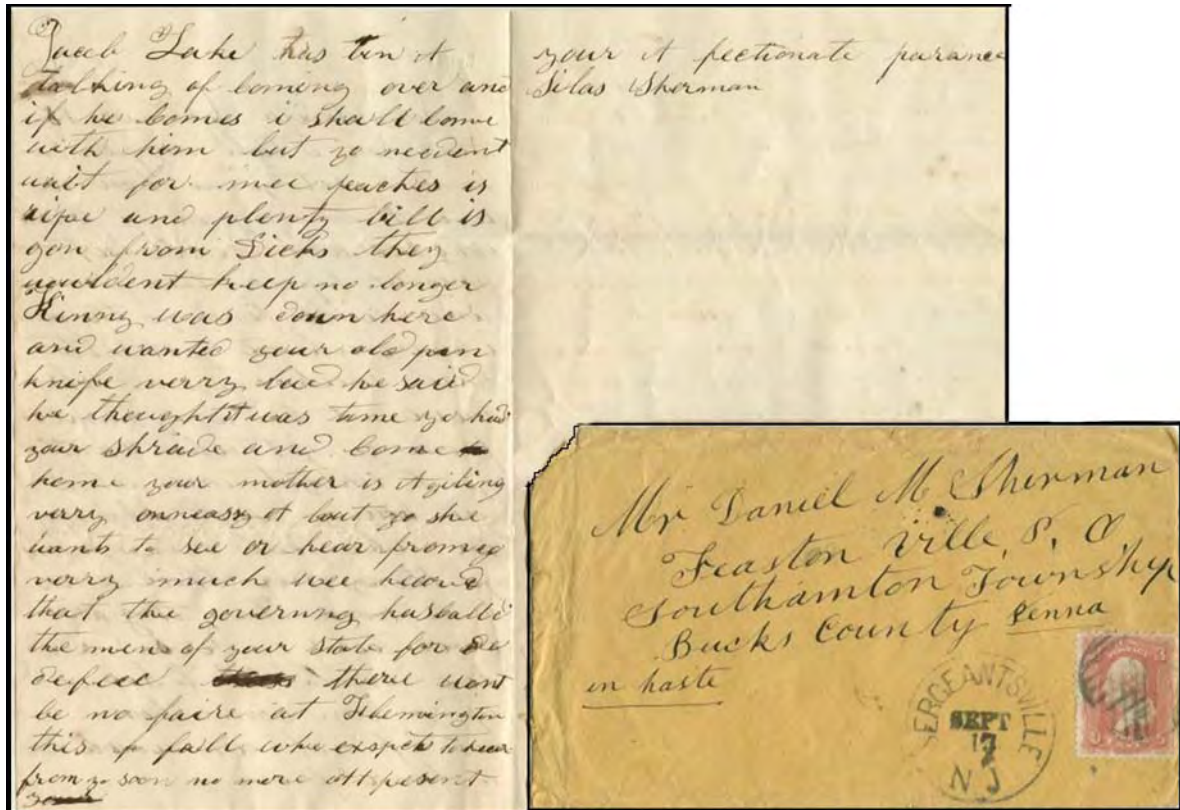 Jacob Lake has bin a
talking of coming over and
if he comes i shall come
with him but yo neednt
wait for mee peaches is
ripe and plenty bill is
gon from Dicks they
wouldent keep no longer
Kinny was down here
and wanted your old pen
knife verry bad he said
he thought it was time yo had
your shride and come
home your mother is a giting
verry onneasy a bout yo she
wants to see or hear from yo
verry much wee heard
that the governny has calld
the men of your state for
there wont
be no faire at Flemington
this fall who exspect to hear
from yo soon no more att present
your a fectionate parance
Silas Sherman
Mr Daniel M Sherman
Feaston Ville, P. O,
Southamton Township
Bucks County Penna
in haste
SERGEANTSVILLE
SEPT
17
N J
3 3